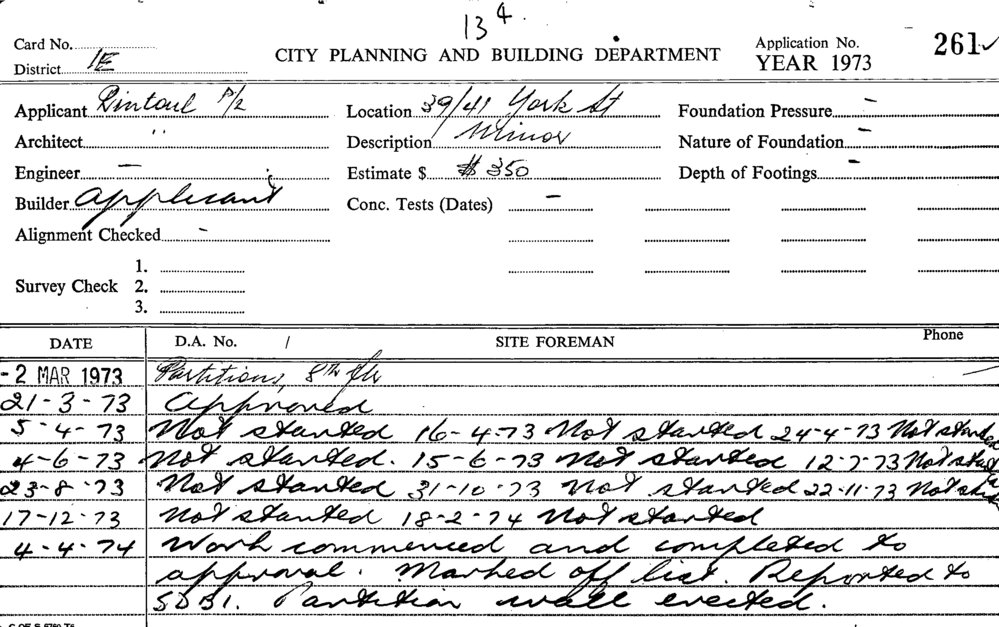 13 4
Card No.
CITY PLANNING AND BUILDING DEPARTMENT
Application No. 261
District 1E
YEAR 1973
Applicant Rintoul P/L
Location 39/41 York St
Foundation Pressure –
Architect "
Description Minor
Nature of Foundation –
Engineer –
Estimate $ $ 350
Depth of Footings –
Builder Applicant
Conc. Tests (Dates) –
Alignment Checked –
Survey Check
1.
2.
3.
DATE D.A. No. / SITE FOREMAN Phone
-2 MAR 1973 Partitions, 8th flr –
21-3-73 Approved
5-4-73 Not started 16-4-73 Not started 24-4-73 Not started
4-6-73 Not started. 15-6-73 Not started 12-7-73 Not started
23-8-73 Not started 31-10-73 Not started 22-11-73 Not started
17-12-73 Not started 18-2-74 Not started
4-4-74 Work commenced and completed to
approval. Marked off list. Reported to
SDBI. Partition wall erected.